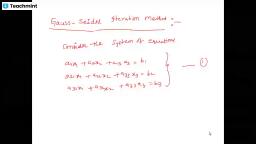 Teachmint
Gauss-Seidel Iteration Method :-
Consider the System of Equations
a11x1 + a12x2 + a13x3 = b1
a21x1 + a22x2 + a23x3 = b2
a31x1 + a32x2 + a33x3 = b3
①